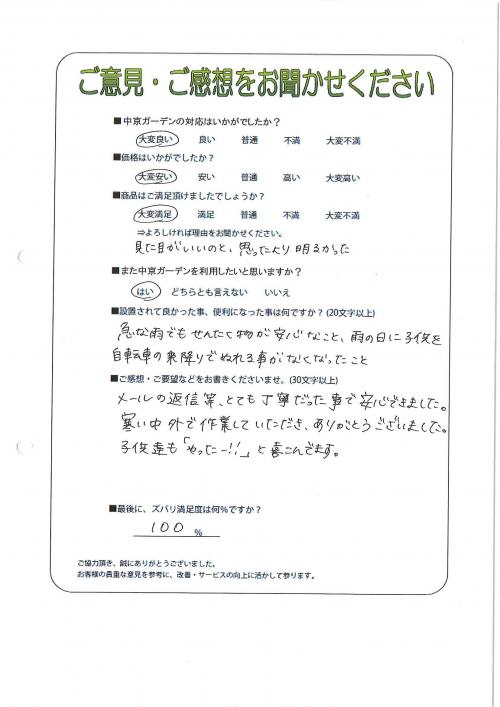 ご意見・ご感想をお聞かせください
■中京ガーデンの対応はいかがでしたか？
大変良い 良い 普通 不満 大変不満
■価格はいかがでしたか？
大変安い 安い 普通 高い 大変高い
■商品はご満足頂けましたでしょうか？
大変満足 満足 普通 不満 大変不満
⇒よろしければ理由をお聞かせください。
見た目がいいのと、思ったより明るかった
■また中京ガーデンを利用したいと思いますか？
はい どちらとも言えない いいえ
■設置されて良かった事、便利になった事は何ですか？(20文字以上)
急な雨でもせんたく物が安心なこと、雨の日に子供を
自転車の乗降りでぬれる事がなくなったこと
■ご感想・ご要望などをお書きくださいませ。(30文字以上)
メールの返信等、とても丁寧だった事で安心できました。
寒い中外で作業していただき、ありがとうございました。
子供達も「やったー!!」と喜こんでます。
■最後に、ズバリ満足度は何%ですか？
100 %
ご協力頂き、誠にありがとうございました。
お客様の貴重な意見を参考に、改善・サービスの向上に活かして参ります。